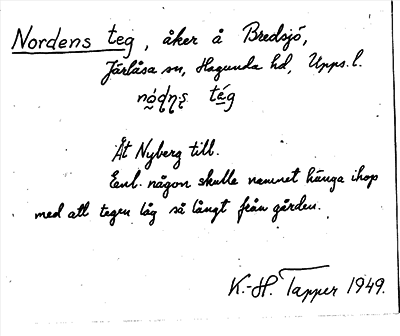 Nordens teg, åker å Bredsjö,
Järlåsa sn, Hagunda hd, Upps. l.
nó̤ɖɳ̥ʂ tég
Åt Nyberg till.
Enl. någon skulle namnet hänga ihop
med att tegen låg så långt från gården.
K.-H. Tapper 1949.